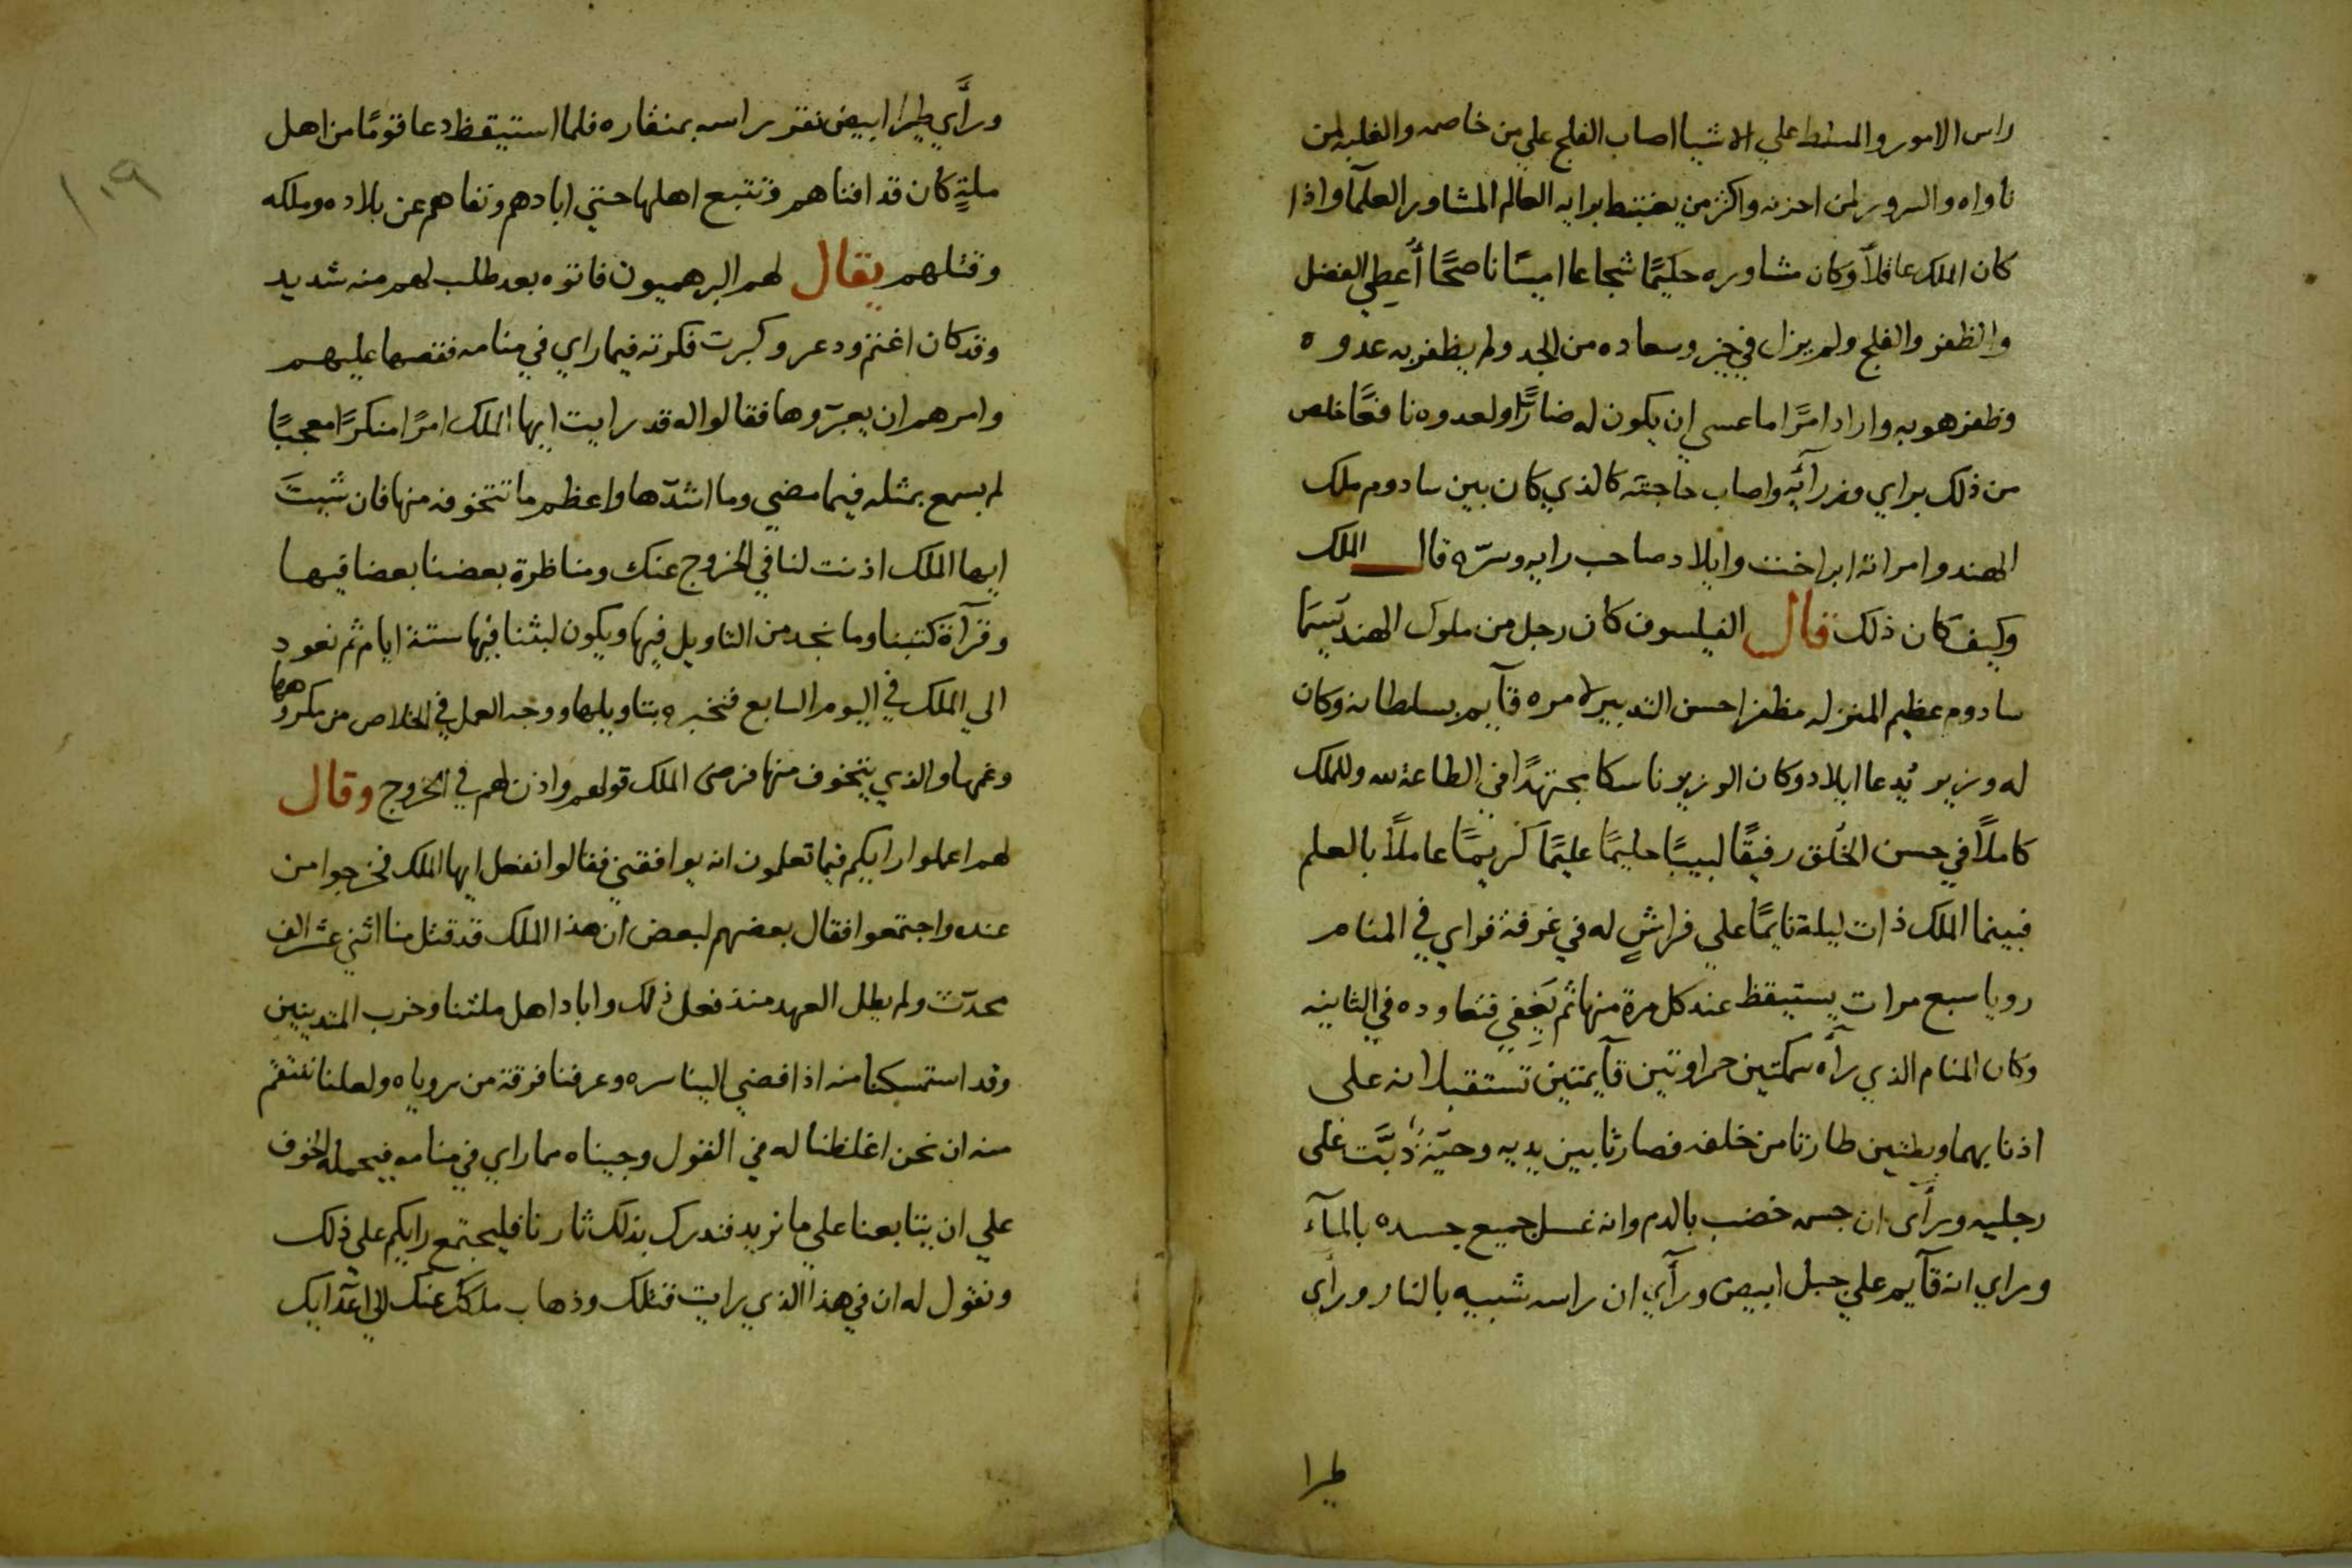 راس الامور والمسلط علي الاشيا اصاب الفلج علي من خاصمه والغلبه لمن
ناواه والسرور لمن احزنه واكثر من يغتبط برايه العالم المشاور العلمآ واذا
كان الملك عاقلاً وكان مشاوره حكيمًا شجاعا امينًا ناصحًا أُعطي الفضل
والظفر والفلج ولم يزل في خير وسعاده من الجد ولم يظفر به عدوه
وظفر هو به واراد امرًا ما عسي ان يكون له ضارًّا ولعدوه نافعًا خلص
من ذلك براي وفر رائه واصاب حاجته كالذي كان بين سادوم ملك
الهند وامراته ابراخت وايلاد صاحب رايه وسرّه قال الملك
وكيف كان ذلك قال الفيلسوف كان رجل من ملوك الهند يُسمَا
سادوم عظيم المنزله مظفرا حسن التدبير لامره قآيم بسلطانه وكان
له وزير يُدعا ايلاد وكان الوزير ناسكا مجتهدًا في الطاعة لله وللملك
كاملاً في حسن الخُلق رفيقًا لبيبًا حليمًا عليمًا كريمًا عاملاً بالعلم
فبينما الملك ذات ليلة نايمًا علي فراشٍ له في غرفة فراي في المنام
رويا سبع مرات يستيقظ عند كل مرة منها ثم يَغفي فتعاوده في الثانيه
وكان المنام الذي رآه سمكتين حمراوتين قآيمتين تستقبلانه على
اذنابهما وبطتين طارتا من خلفه فصارتا بين يديه وحيّة دَبَّت على
رجليه ورأى ان جسه خضب بالدم وانه غسل جميع جسده بالمآء
وراي انه قآيم علي جبل ابيض ورآي ان راسه شبيه بالنار ورأي
طيرا
١٠٩
ورأَي طيرا ابيض نقر راسه بمنقاره فلما استيقظ دعا قومًا من اهل
ملةٍ كان قد افناهم وتتبع اهلها حتي ابادهم ونفاهم عن بلاده وملكه
وقتلهم يقال لهم البرهميون فاتوه بعد طلب لهم منه شديد
وقد كان اغتم وذعر وكبرت فكرته فيما راي في منامه فقصها عليهم
وامرهم ان يعبّروها فقالوا له قد رايت ايها الملك امرًا منكرًا معجبًا
لم يسمع بمثله فيما مضي وما اشدّها واعظم ما نتخوفه منها فان شيتَ
ايها الملك اذنت لنا في الخروج عنك ومناظرة بعضنا بعضا فيها
وقرآة كتبنا وما نجد من التاويل فيها ويكون لبثنا فيها ستة ايام ثم نعود
الي الملك في اليوم السابع فنخبره بتاويلها ووجه العمل في الخلاص من مكروهها
وغمها والذي يتخوف منها فرضى الملك قولهم واذن لهم في الخروج وقال
لهم اعملوا رايكم فيما تعلمون انه يوافقني فقالوا نفعل ايها الملك فخرجوا من
عنده واجتمعوا فقال بعضهم لبعض ان هذا الملك قد قتل منا اثني عشر الف
محدّث ولم يطل العهد منذ فعل ذلك واباد اهل ملتنا وخرب المتدينين
وقد استمسكنا منه اذ افضي الينا سره وعرفنا فرقة من روياه ولعلنا ننتقم
منه ان نحن اغلظنا له في القول وجيناه مما راي في منامه فيحمله الخوف
علي ان يتابعنا علي ما نريد فندرك بذلك ثارنا فليجتمع رايكم علي ذلك
ونقول له ان في هذا الذي رايت قتلك وذهاب ملكك عنك الي اعدآيك